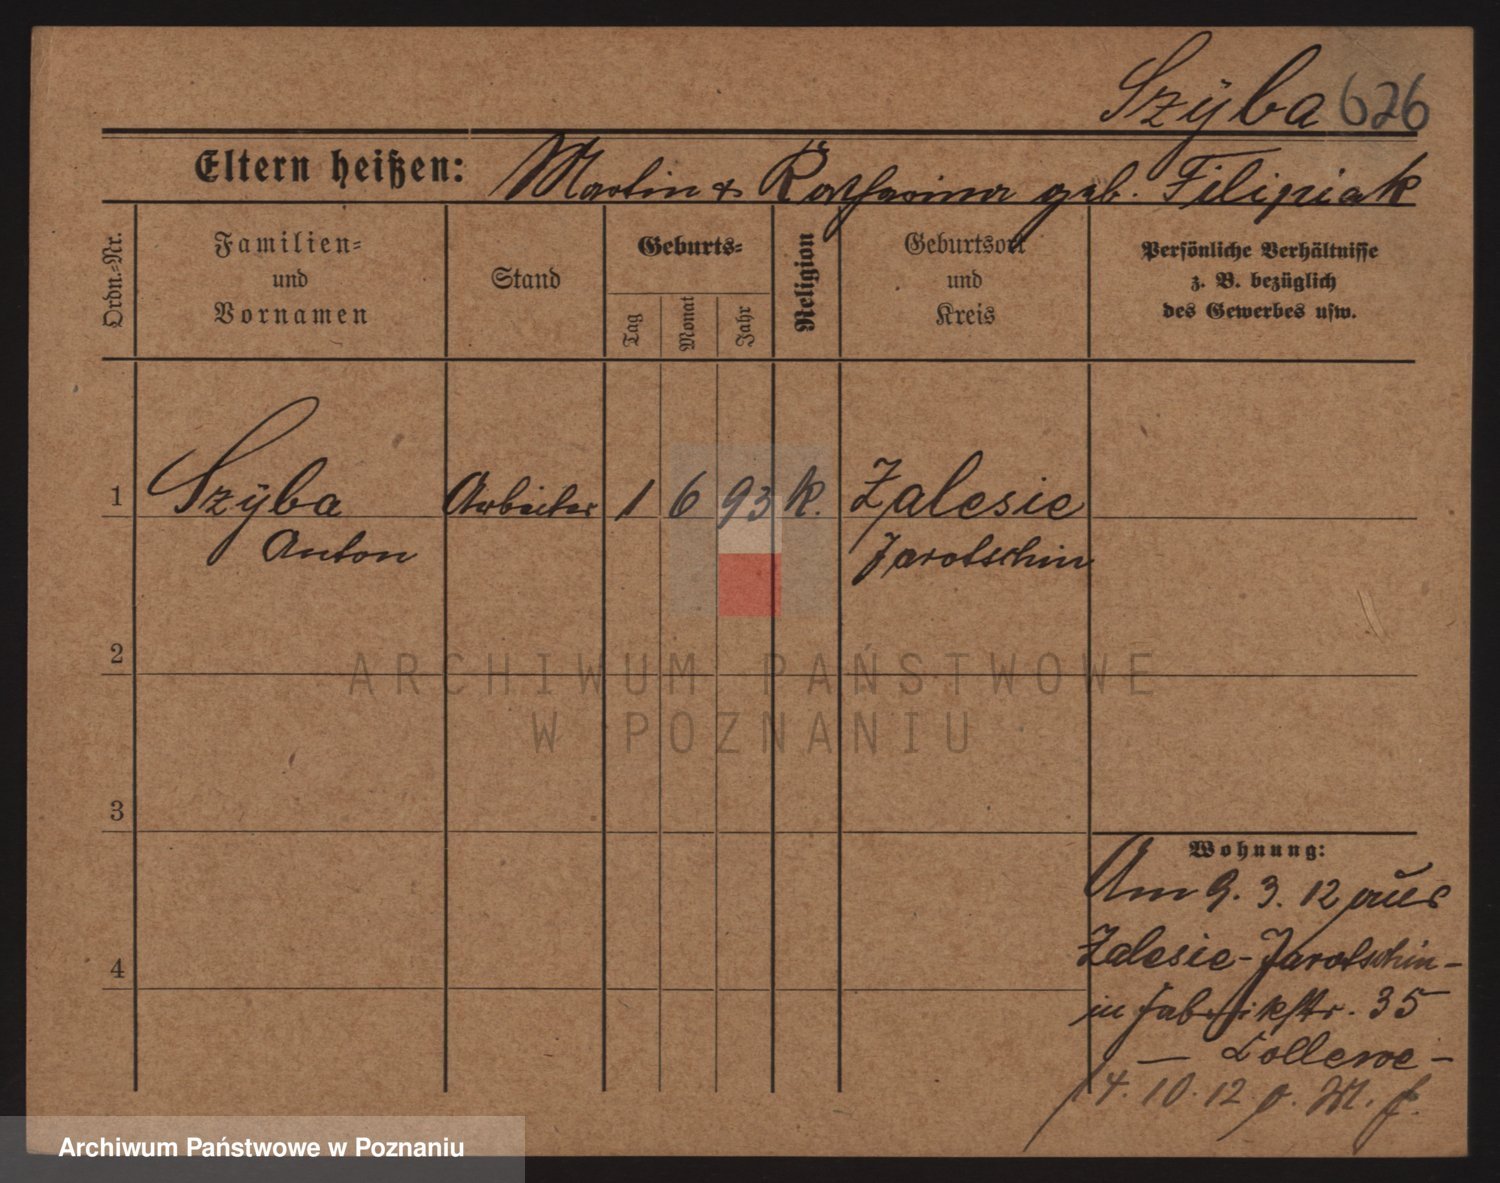 Szÿba 626
Eltern heißen: Martin & Katharina geb. Filipiak
Ordn.=Nr.
Familien=
und
Vornamen
Stand
Geburts=
Tag
Monat
Jahr
Religion
Geburtsort
und
Kreis
Persönliche Verhältnisse
z. B. bezüglich
des Gewerbes usw.
1 Szÿba Arbeiter 1 6 93 k. Zalesie
Anton Jarotschin
2
3
4
Wohnung:
Am 9. 3. 12 aus
Zalesie-Jarotschin-
in Fabrikstr. 35
— Lollewe -
14. 10. 12 o. M. f.
ARCHIWUM PAŃSTWOWE
W POZNANIU
Archiwum Państwowe w Poznaniu